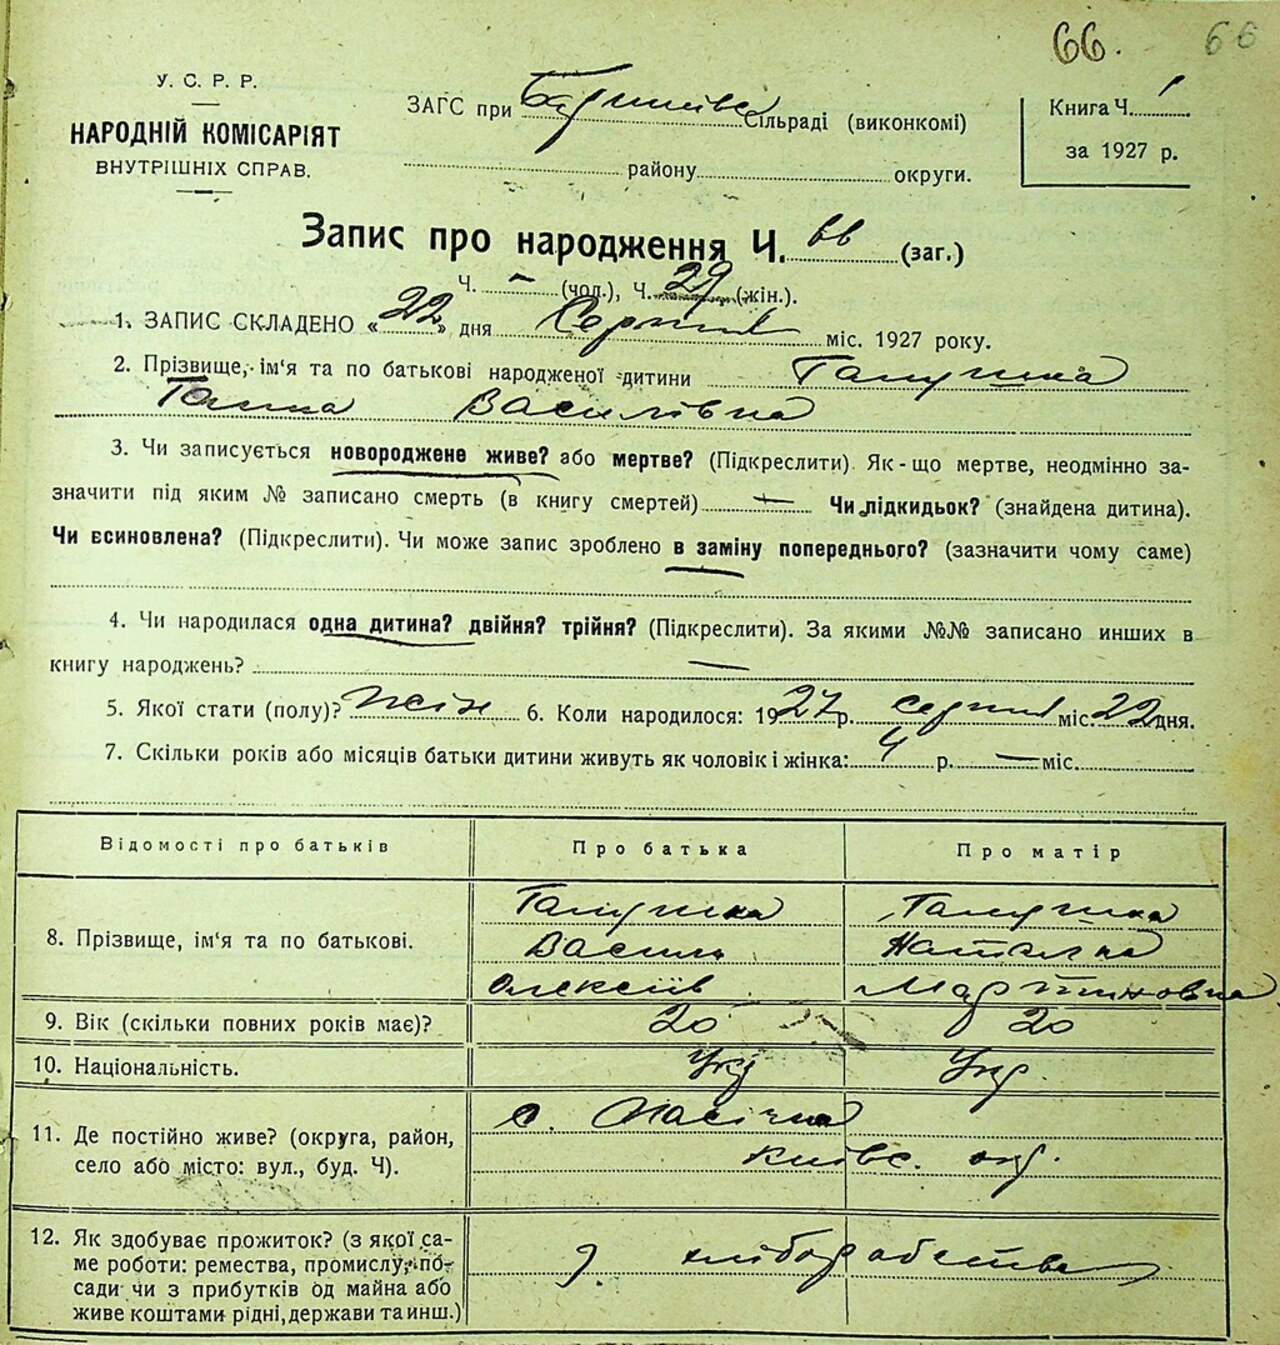 66. 66
У. С. Р. Р.
НАРОДНІЙ КОМІСАРІЯТ
ВНУТРІШНІХ СПРАВ.
ЗАГС при сільраді (виконкомі)
району округи.
Книга Ч. 1
за 1927 р.
Запис про народження Ч. 66 (заг.)
Ч. – (чол.), Ч. 29 (жін.).
1. ЗАПИС СКЛАДЕНО «22» дня Серпня міс. 1927 року.
2. Прізвище, ім'я та по батькові народженої дитини Галушка
Ганна Василівна
3. Чи записується новороджене живе? або мертве? (Підкреслити). Як-що мертве, неодмінно за-
значити під яким № записано смерть (в книгу смертей) — Чи підкидьок? (знайдена дитина).
Чи всиновлена? (Підкреслити). Чи може запис зроблено в заміну попереднього? (зазначити чому саме)
4. Чи народилася одна дитина? двійня? трійня? (Підкреслити). За якими №№ записано инших в
книгу народжень? —
5. Якої стати (полу)? жін 6. Коли народилося: 1927 р. серпня міс. 22 дня.
7. Скільки років або місяців батьки дитини живуть як чоловік і жінка: 4 р. — міс.
Відомості про батьків Про батька Про матір
8. Прізвище, ім'я та по батькові.
Галушка Галушка
Василь Наталка
Олексіїв Мартиновна
9. Вік (скільки повних років має)? 20 20
10. Національність. Укр Укр.
11. Де постійно живе? (округа, район,
село або місто: вул., буд. Ч).
с. Пасічна
Київс. окр.
12. Як здобуває прожиток? (з якої са-
ме роботи: ремества, промислу, по-
сади чи з прибутків од майна або
живе коштами рідні, держави та инш.)
хліборобства